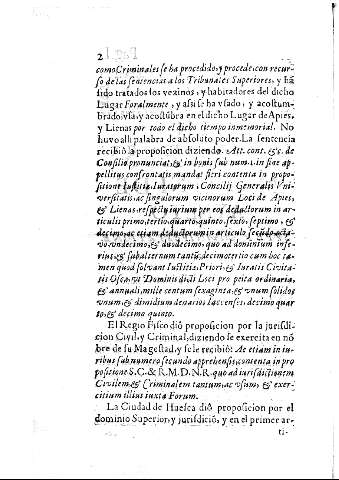 2
como Criminales se ha procedido, y procede, con recur-
so de las sentencias a los Tribunales Superiores, y hã
sido tratados los vezinos, y habitadores del dicho
Lugar Foralmente, y assi se ha vsado, y acostum-
brado, vsa, y acostũbra en el dicho Lugar de Apies,
y Lienas por todo el dicho tiempo inmemorial. No
huvo alli palabra de absoluto poder. La sentencia
recibiò la proposicion diziendo. Att. cont. &c. de
Consilio pronunciat, & in bunis sub num. 1. in fine ap-
pellitus confrontatis mandat fieri contenta in propo-
sitione Iustitia, Iuratorum, Concilij Generalis Vni-
versitatis, ac singulorum vicinorum Loci de Apies,
& Lienas, respectu iurium per eos deductorum in ar-
ticulis primo, tertio, quarto, quinto, sexto, septimo, &
decimo, ac etiam deductorum in articulo secũdo, octa-
vo, vndecimo, & duodecimo, quo ad dominium infe-
rius, & subalternum tantũ, decimotertio cum hoc ta-
men quod solvant Iustitie, Priori, & Iuratis Civita-
tis Oscæ, vt Dominis dicti Loci pro peita ordinaria,
& annuali, mille centum sexaginta, & vnum solidos
vnum, & dimidium denarios Iaccenses, decimo quar
to, & decimo quinto.
El Regio Fisco diò proposicion por la jurisdi-
cion Civil, y Criminal, diziendo se exercita en nõ
bre de su Magestad, y se le recibiò: Ac etiam in iu-
ribus sub numero secundo aprehensis, contenta in pro
positione S. C. & R. M. D. N. R. quo ad iurisdictionem
Civilem, & Criminalem tantum, ac vsum, & exer-
citium illius iuxta Forum.
La Ciudad de Huesca diò proposicion por el
dominio Superior, y jurisdiciõ, y en el primer ar-
ti-